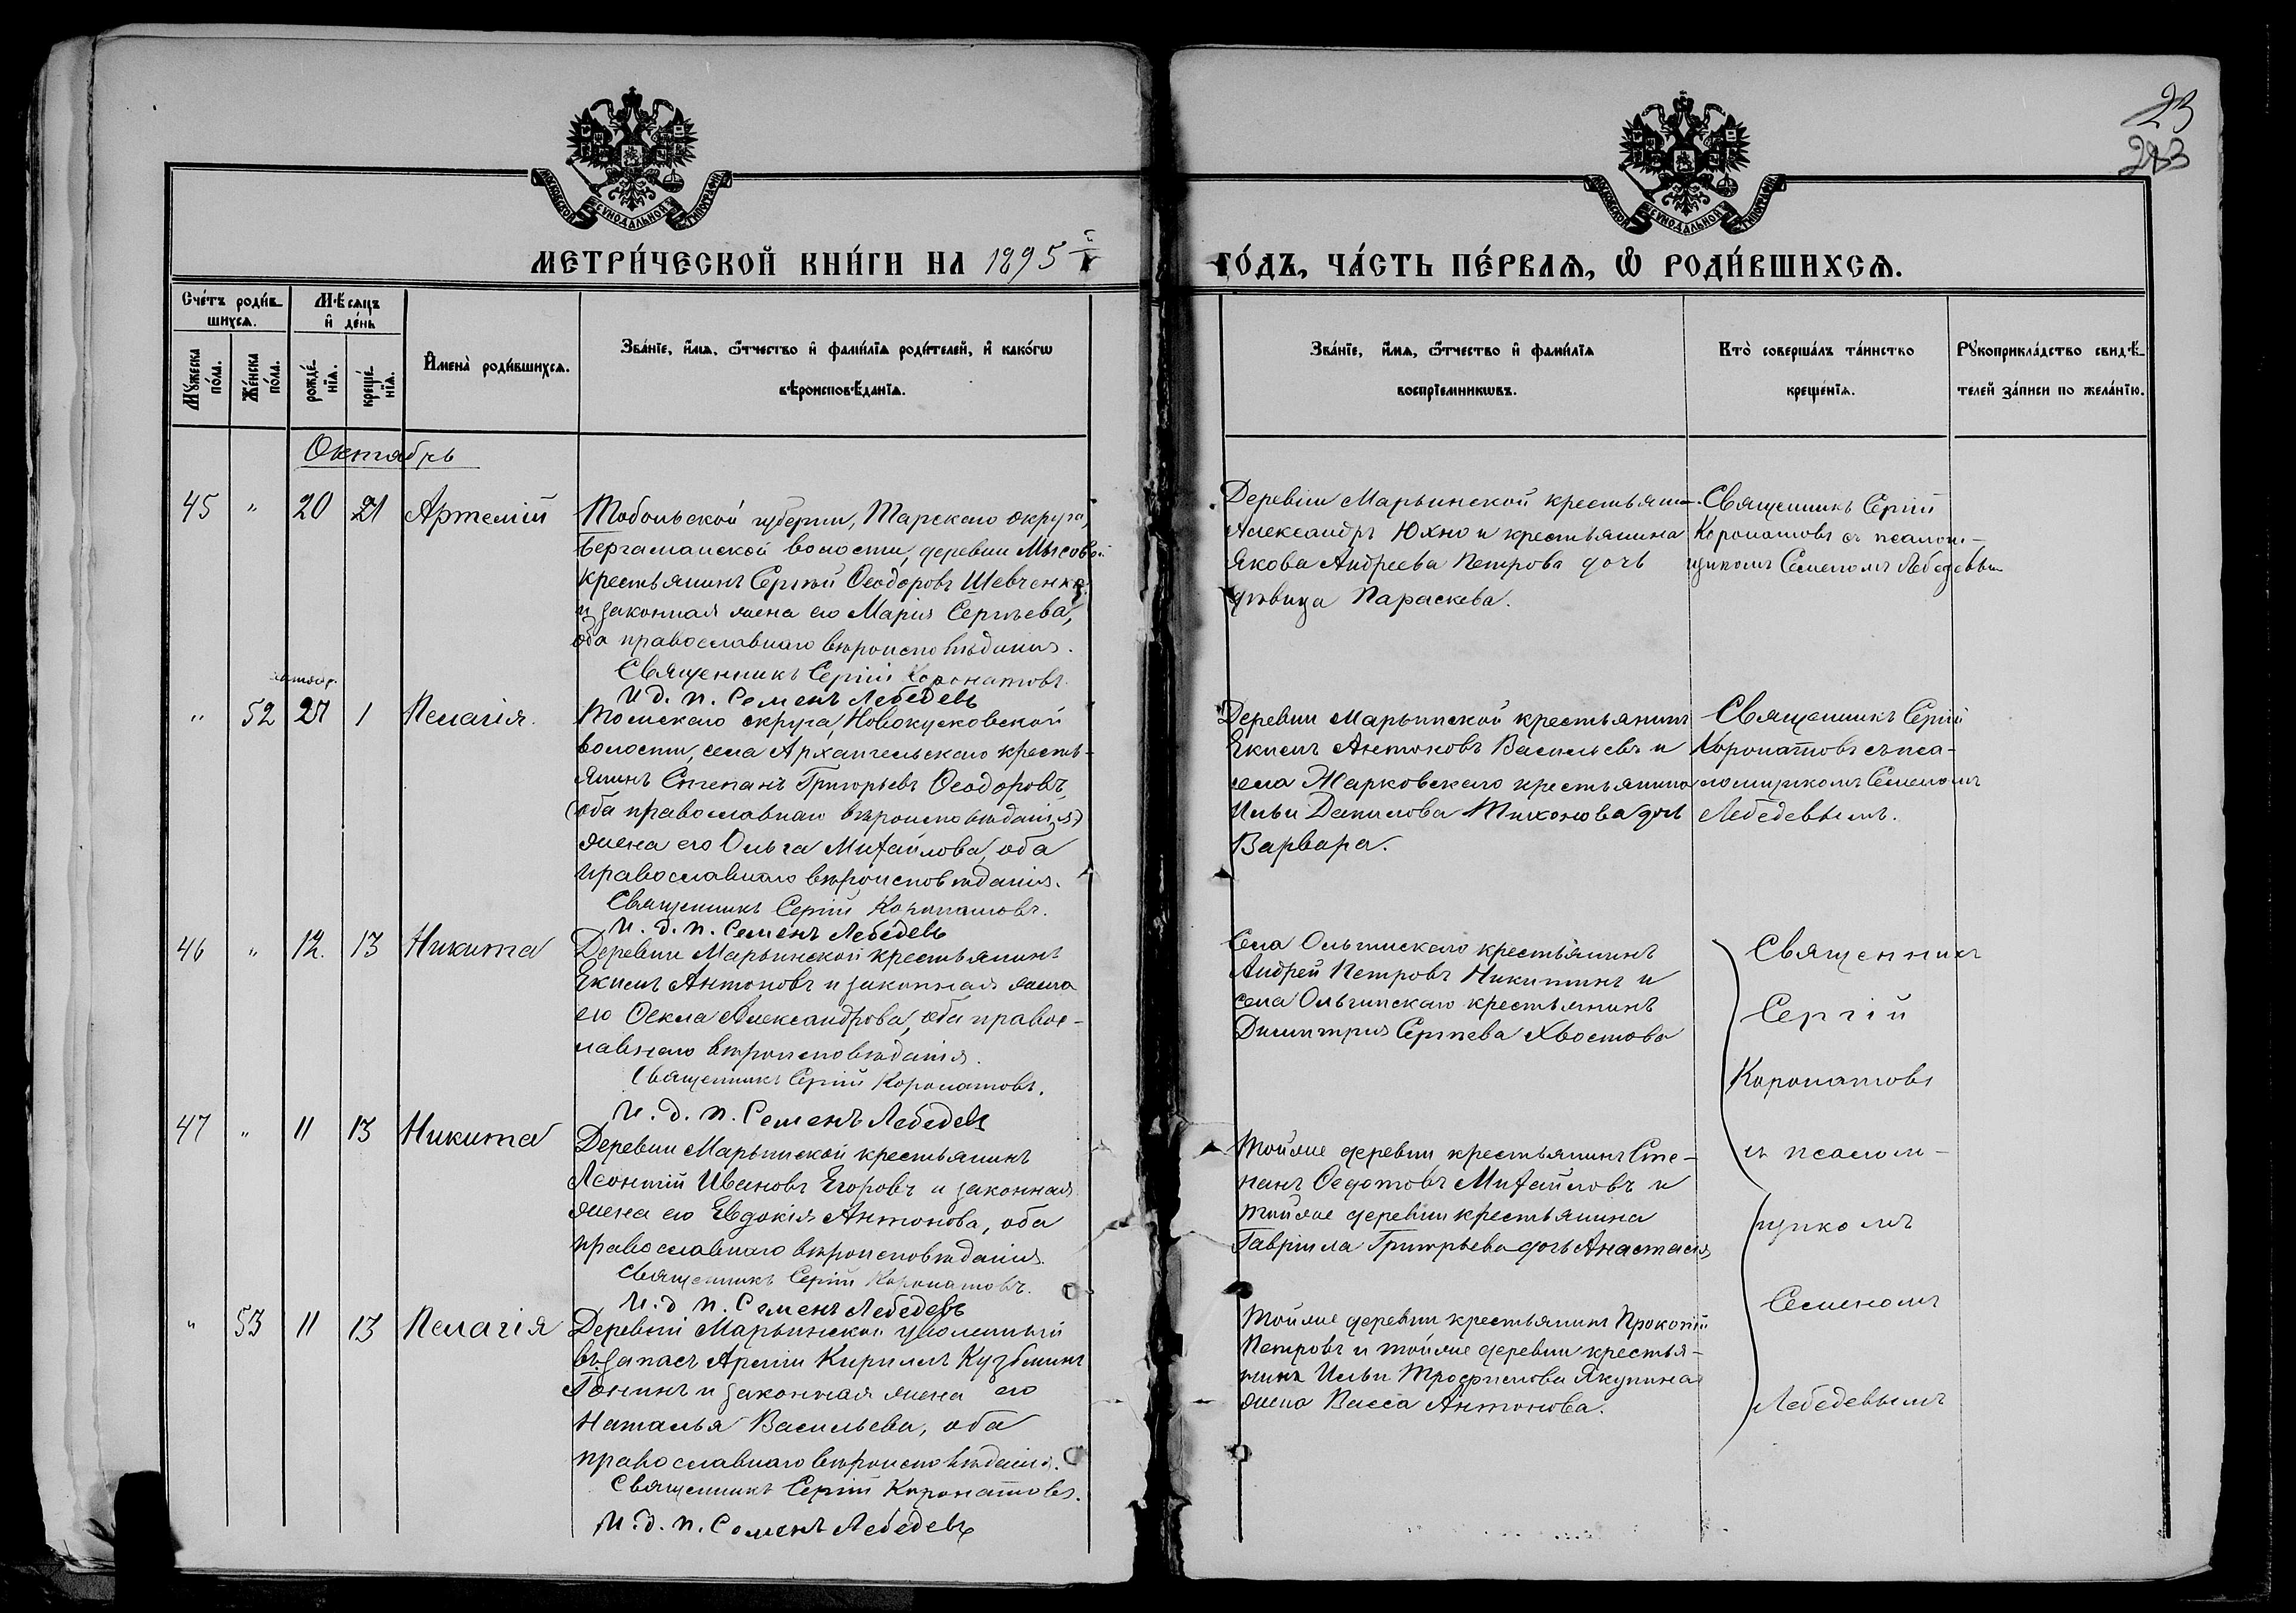 23
283
МОСКОВСКОЙ СѴНОДАЛЬНОЙ ТИПОГРАФІИ
МОСКОВСКОЙ СѴНОДАЛЬНОЙ ТИПОГРАФІИ
МЕТРИ́ЧЕСКОЙ КНИ́ГИ НА 1895 й ГО́ДЪ, ЧА́СТЬ ПЕ́РВАѦ, Ѽ РОДИ́ВШИХСѦ.
Сче́тъ роди́в-
шихсѧ.
Мѣ́сѧцъ
и҆ де́нь
Мꙋ́жеска по́ла.
Же́нска по́ла.
рожде́-нїѧ.
креще́-нїѧ.
И҆мена̀ роди́вшихсѧ.
Зва́нїе, и҆́мѧ, ѻ҆́тчество и҆ фами́лїѧ роди́телей, и҆ како́гѡ
вѣроисповѣ́данїѧ.
Зва́нїе, и҆́мѧ, ѻ҆́тчество и҆ фами́лїѧ
воспрїе́мникѡвъ.
Кто̀ соверша́лъ та́инство
креще́нїѧ.
Рꙋкоприкла́дство свидѣ́-
телей за́писи по жела́нїю.
Октябрь
45 " 20 21 Артемій
Тобольской губерніи, Тарскаго округа,
Бергаманской волости, деревни Мысовой
крестьянинъ Сергій Ѳеодоровъ Шевченко
и законная жена его Марія Сергѣева,
оба православнаго вѣроисповѣданія.
Священникъ Сергій Коронатовъ.
И. д. п. Семенъ Лебедевъ
Деревни Марьинской крестьянин
Александръ Юхно и крестьянина
Якова Андреева Петрова дочь
дѣвица Параскева.
Священникъ Сергій
Коронатовъ съ псалом-
щикомъ Семеномъ Лебедевым
" 52 27 1 Пелагія.
Томскаго округа, Новокусковской
волости, села Архангельскаго кресть-
янинъ Степанъ Григорьевъ Ѳеодоровъ,
(оба православнаго вѣроисповѣданія)
жена его Ольга Михайлова, оба
православнаго вѣроисповѣданія.
Священникъ Сергій Коронатовъ.
И. д. п. Семенъ Лебедевъ
Деревни Марьинской крестьянинъ
Екимъ Антоновъ Васильевъ и
села Жарковскаго крестьянина
Ильи Данилова Тихонова дочь
Варвара.
Священникъ Сергій
Коронатовъ съ пса-
ломщикомъ Семеномъ
Лебедевымъ.
46 " 12. 13 Никита
Деревни Марьинской крестьянинъ
Екимъ Антоновъ и законная жена
его Ѳекла Александрова, оба правос-
лавнаго вѣроисповѣданія.
Священникъ Сергій Коронатовъ.
И. д. п. Семенъ Лебедевъ
Села Ольгинскаго крестьянинъ
Андрей Петровъ Никитинъ и
села Ольгинскаго крестьянинъ
Димитрія Сергѣева Хвостова
47 " 11 13 Никита
Деревни Марьинской крестьянинъ
Леонтій Ивановъ Егоровъ и законная
жена его Евдокія Антонова, оба
православнаго вѣроисповѣданія.
Священникъ Сергій Коронатовъ.
И. д. п. Семенъ Лебедевъ
Тойже деревни крестьянинъ Сте-
панъ Ѳедотовъ Михайловъ и
тойже деревни крестьянина
Гавріила Григорьева дочь Анастасія
" 53 11 13 Пелагія
Деревни Марьинской уволенный
въ запасъ Арміи Кирилъ Кузьминъ
Лонинъ и законная жена его
Наталья Васильева, оба
православнаго вѣроисповѣданія.
Священникъ Сергій Коронатовъ.
И. д. п. Семенъ Лебедевъ
Тойже деревни крестьянинъ Прокопій
Петровъ и тойже деревни крестья-
нина Ильи Трофимова Якунина
жена Васса Антонова.
Священникъ
Сергій
Коронатовъ
съ псалом-
щикомъ
Семеномъ
Лебедевымъ